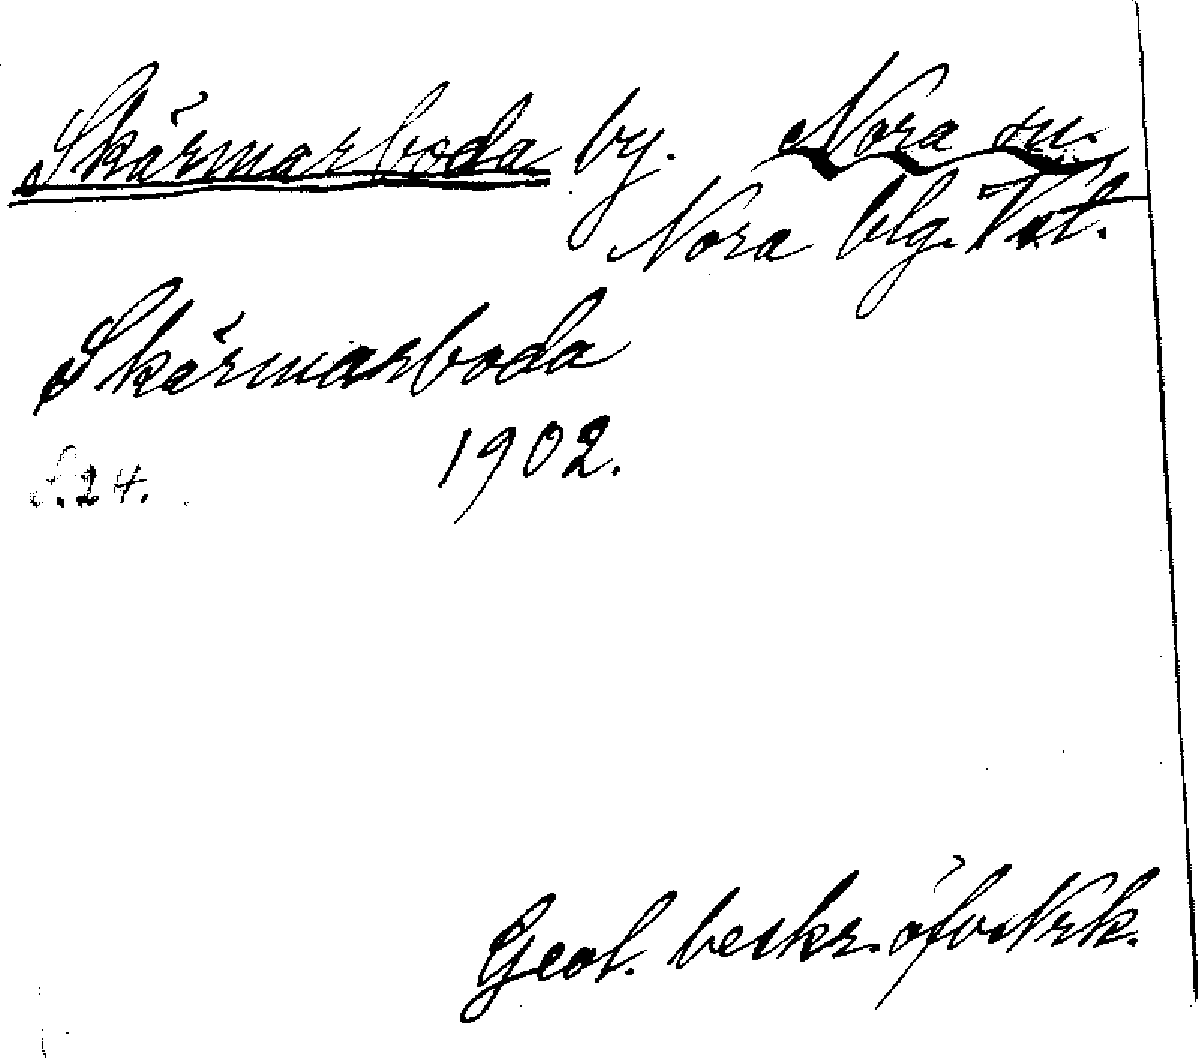 Skärmarboda by. Nora sn.
Nora blg. Vstl.
Skärmarboda
1902.
S. 24.
Geol. beskr. öfv. Nrk.